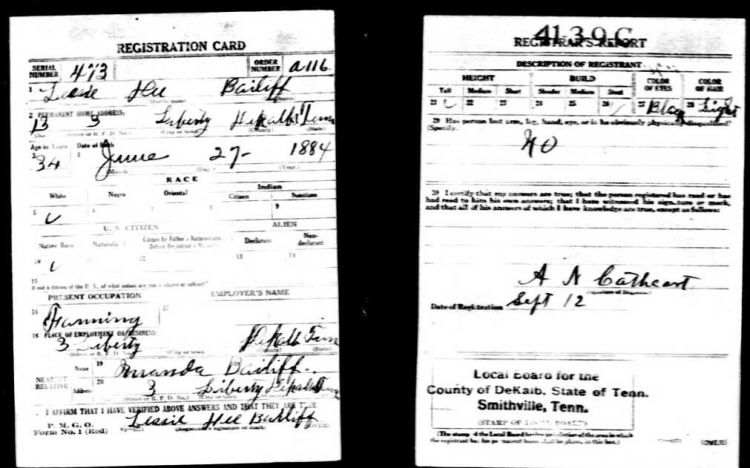 REGISTRATION CARD
SERIAL NUMBER 473 ORDER NUMBER A116
1 Lessie Bailiff
2 PERMANENT HOME ADDRESS:
3 Liberty DeKalb Tenn
(City or town) (County) (State)
Age in Years Date of Birth
34 June 27- 1884
(Month) (Day) (Year)
RACE
White Negro Oriental Indian
Citizen Noncitizen
5 9
U. S. CITIZEN ALIEN
Native Born Citizen by Father's Naturalization Before Registrant's Majority Declarant Non-declarant
10 12 13 14
15
If not a citizen of the U. S., of what nation are you a citizen or subject?
PRESENT OCCUPATION EMPLOYER'S NAME
16 17
Farming
18 PLACE OF EMPLOYMENT OR BUSINESS:
3 Liberty DeKalb Tenn
NEAREST RELATIVE
Name 19 Bailiff
Address 20 3 Liberty DeKalb Tenn
I AFFIRM THAT I HAVE VERIFIED ABOVE ANSWERS AND THAT THEY ARE TRUE
P. M. G. O.
Form No. 1 (Red) Lessie Bailiff
4139C
REGISTRAR'S REPORT
DESCRIPTION OF REGISTRANT
HEIGHT BUILD COLOR OF EYES COLOR OF HAIR
Tall Medium Short Slender Medium Stout
21 22 23 24 25 26 27 28 Light
29 Has person lost arm, leg, hand, eye, or is he obviously physically disqualified?
(Specify.)
NO
30 I certify that my answers are true; that the person registered has read or has
had read to him his own answers; that I have witnessed his signature or mark,
and that all of his answers of which I have knowledge are true, except as follows:
A N Cathcart
Date of Registration Sept 12
Local Board for the
County of DeKalb, State of Tenn.
Smithville, Tenn.
(STAMP OF LOCAL BOARD)
(OVER)